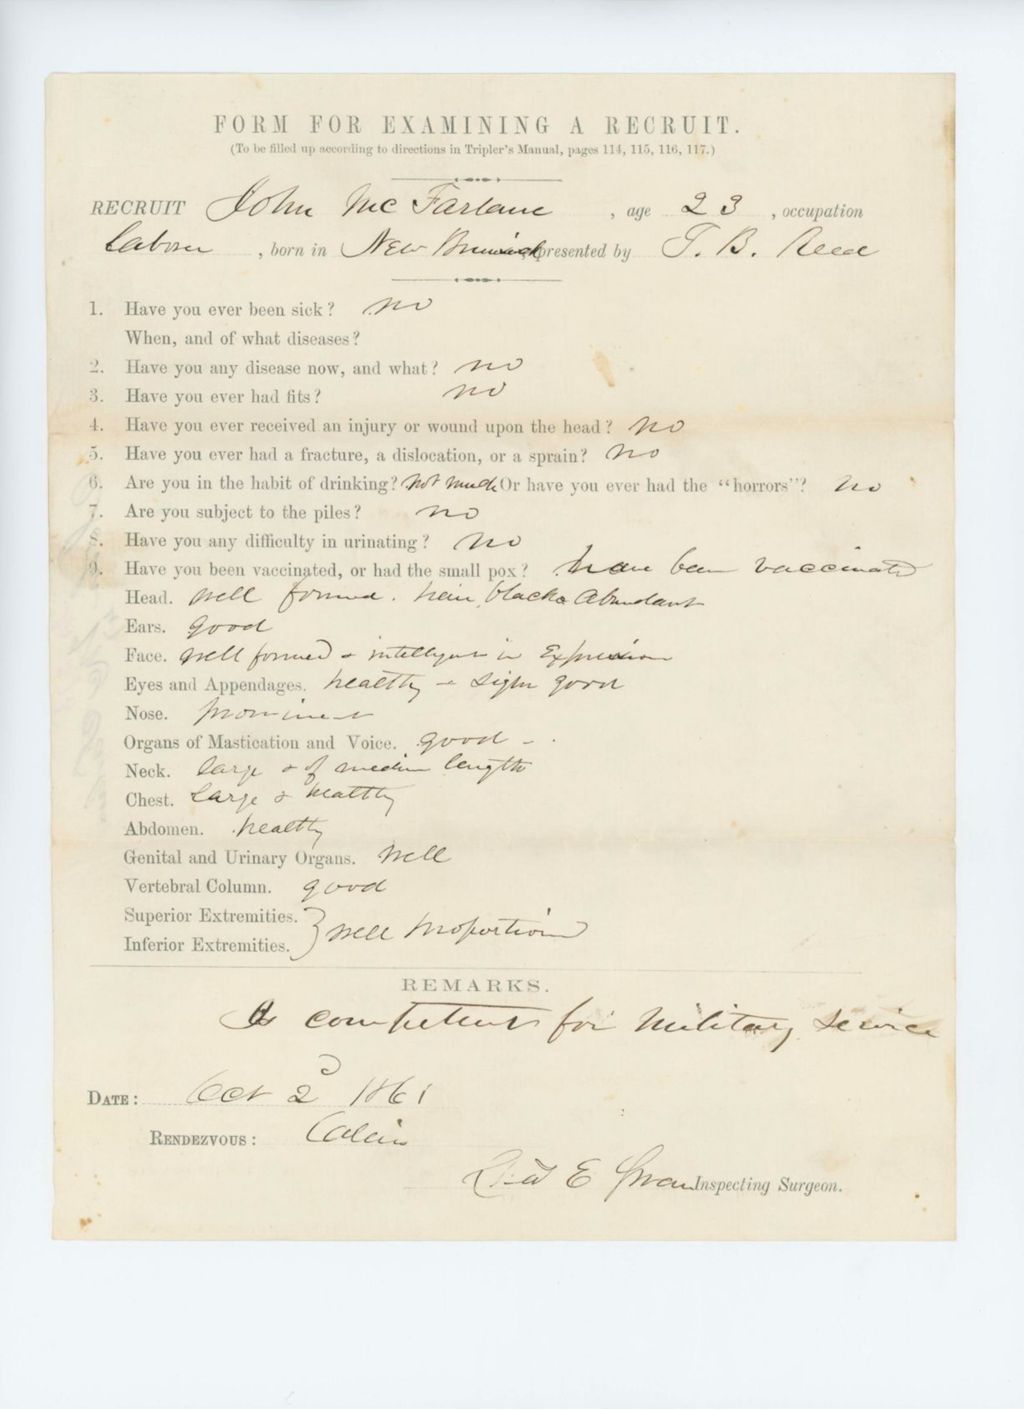 FORM FOR EXAMINING A RECRUIT.
(To be filled up according to directions in Tripler's Manual, pages 114, 115, 116, 117.)
RECRUIT John McFarlane , age 23 , occupation
Laborer , born in New Brunswick presented by T. B. Reed
1. Have you ever been sick? no
When, and of what diseases?
2. Have you any disease now, and what? no
3. Have you ever had fits? no
4. Have you ever received an injury or wound upon the head? no
5. Have you ever had a fracture, a dislocation, or a sprain? no
6. Are you in the habit of drinking? not much Or have you ever had the "horrors"? no
7. Are you subject to the piles? no
8. Have you any difficulty in urinating? no
9. Have you been vaccinated, or had the small pox? have been vaccinated
Head. well formed. hair, black & abundant
Ears. good
Face. well formed & intelligent in Expression
Eyes and Appendages. healthy & sight good
Nose. prominent
Organs of Mastication and Voice. good
Neck. large & of medium length
Chest. Large & healthy
Abdomen. healthy
Genital and Urinary Organs. well
Vertebral Column. good
Superior Extremities.
Inferior Extremities. } well proportioned
REMARKS.
Is competent for military service
DATE: Oct 2d 1861
RENDEZVOUS: Calais
E Swan Inspecting Surgeon.